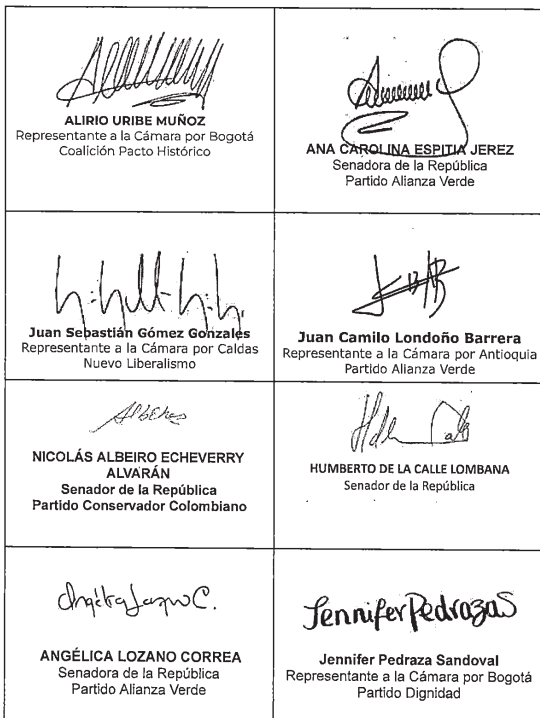 ALIRIO URIBE MUÑOZ
Representante a la Cámara por Bogotá
Coalición Pacto Histórico
ANA CAROLINA ESPITIA JEREZ
Senadora de la República
Partido Alianza Verde
Juan Sebastián Gómez Gonzales
Representante a la Cámara por Caldas
Nuevo Liberalismo
Juan Camilo Londoño Barrera
Representante a la Cámara por Antioquia
Partido Alianza Verde
NICOLÁS ALBEIRO ECHEVERRY
ALVARÁN
Senador de la República
Partido Conservador Colombiano
HUMBERTO DE LA CALLE LOMBANA
Senador de la República
Angélica Lozano C.
ANGÉLICA LOZANO CORREA
Senadora de la República
Partido Alianza Verde
Jennifer Pedraza S
Jennifer Pedraza Sandoval
Representante a la Cámara por Bogotá
Partido Dignidad